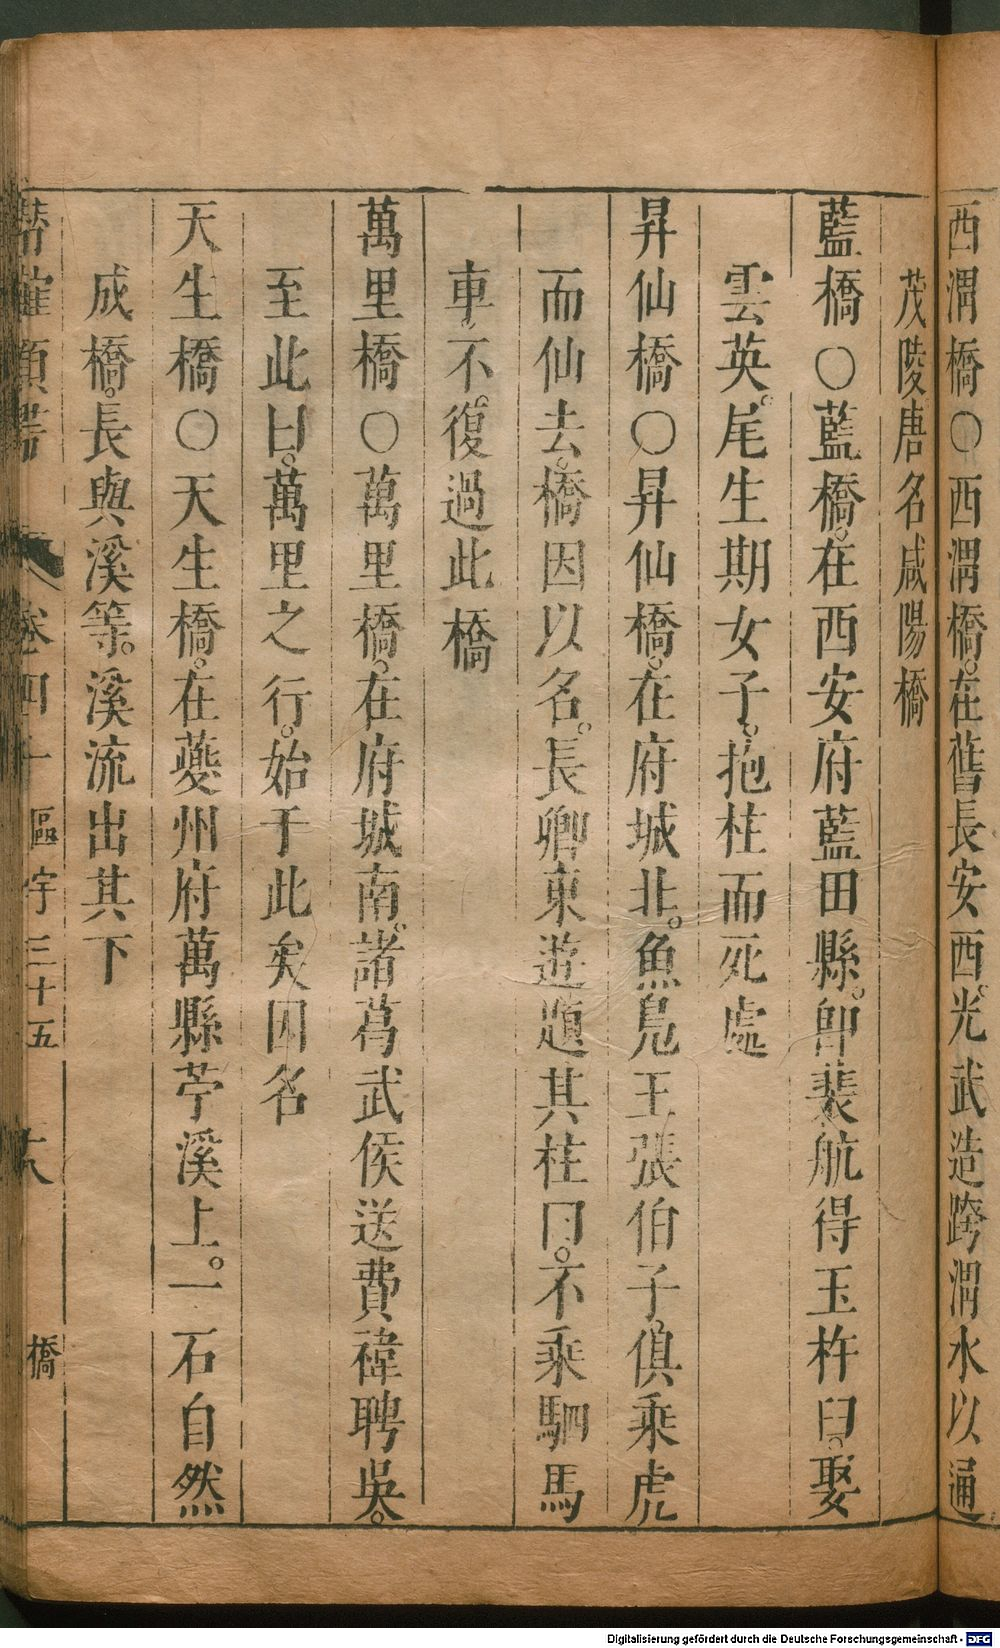 西渭橋○西渭橋。在舊長安西。光武造跨渭水以通
茂陵唐名咸陽橋
藍橋○藍橋。在西安府藍田縣。卽裴航得玉杵臼。娶
雲英。尾生期女子。抱柱而死處
昇仙橋○昇仙橋。在府城北。魚鳧王張伯子俱乘虎
而仙去。橋因以名。長卿東遊題其柱曰。不乘駟馬
車。不復過此橋
萬里橋○萬里橋。在府城南。諸葛武侯送費禕聘吳。
至此曰。萬里之行。始于此矣因名
天生橋○天生橋。在夔州府萬縣苧溪上。一石自然
成橋。長與溪等。溪流出其下
卷四十 區宇三十五 橋
Digitalisierung gefördert durch die Deutsche Forschungsgemeinschaft - DFG